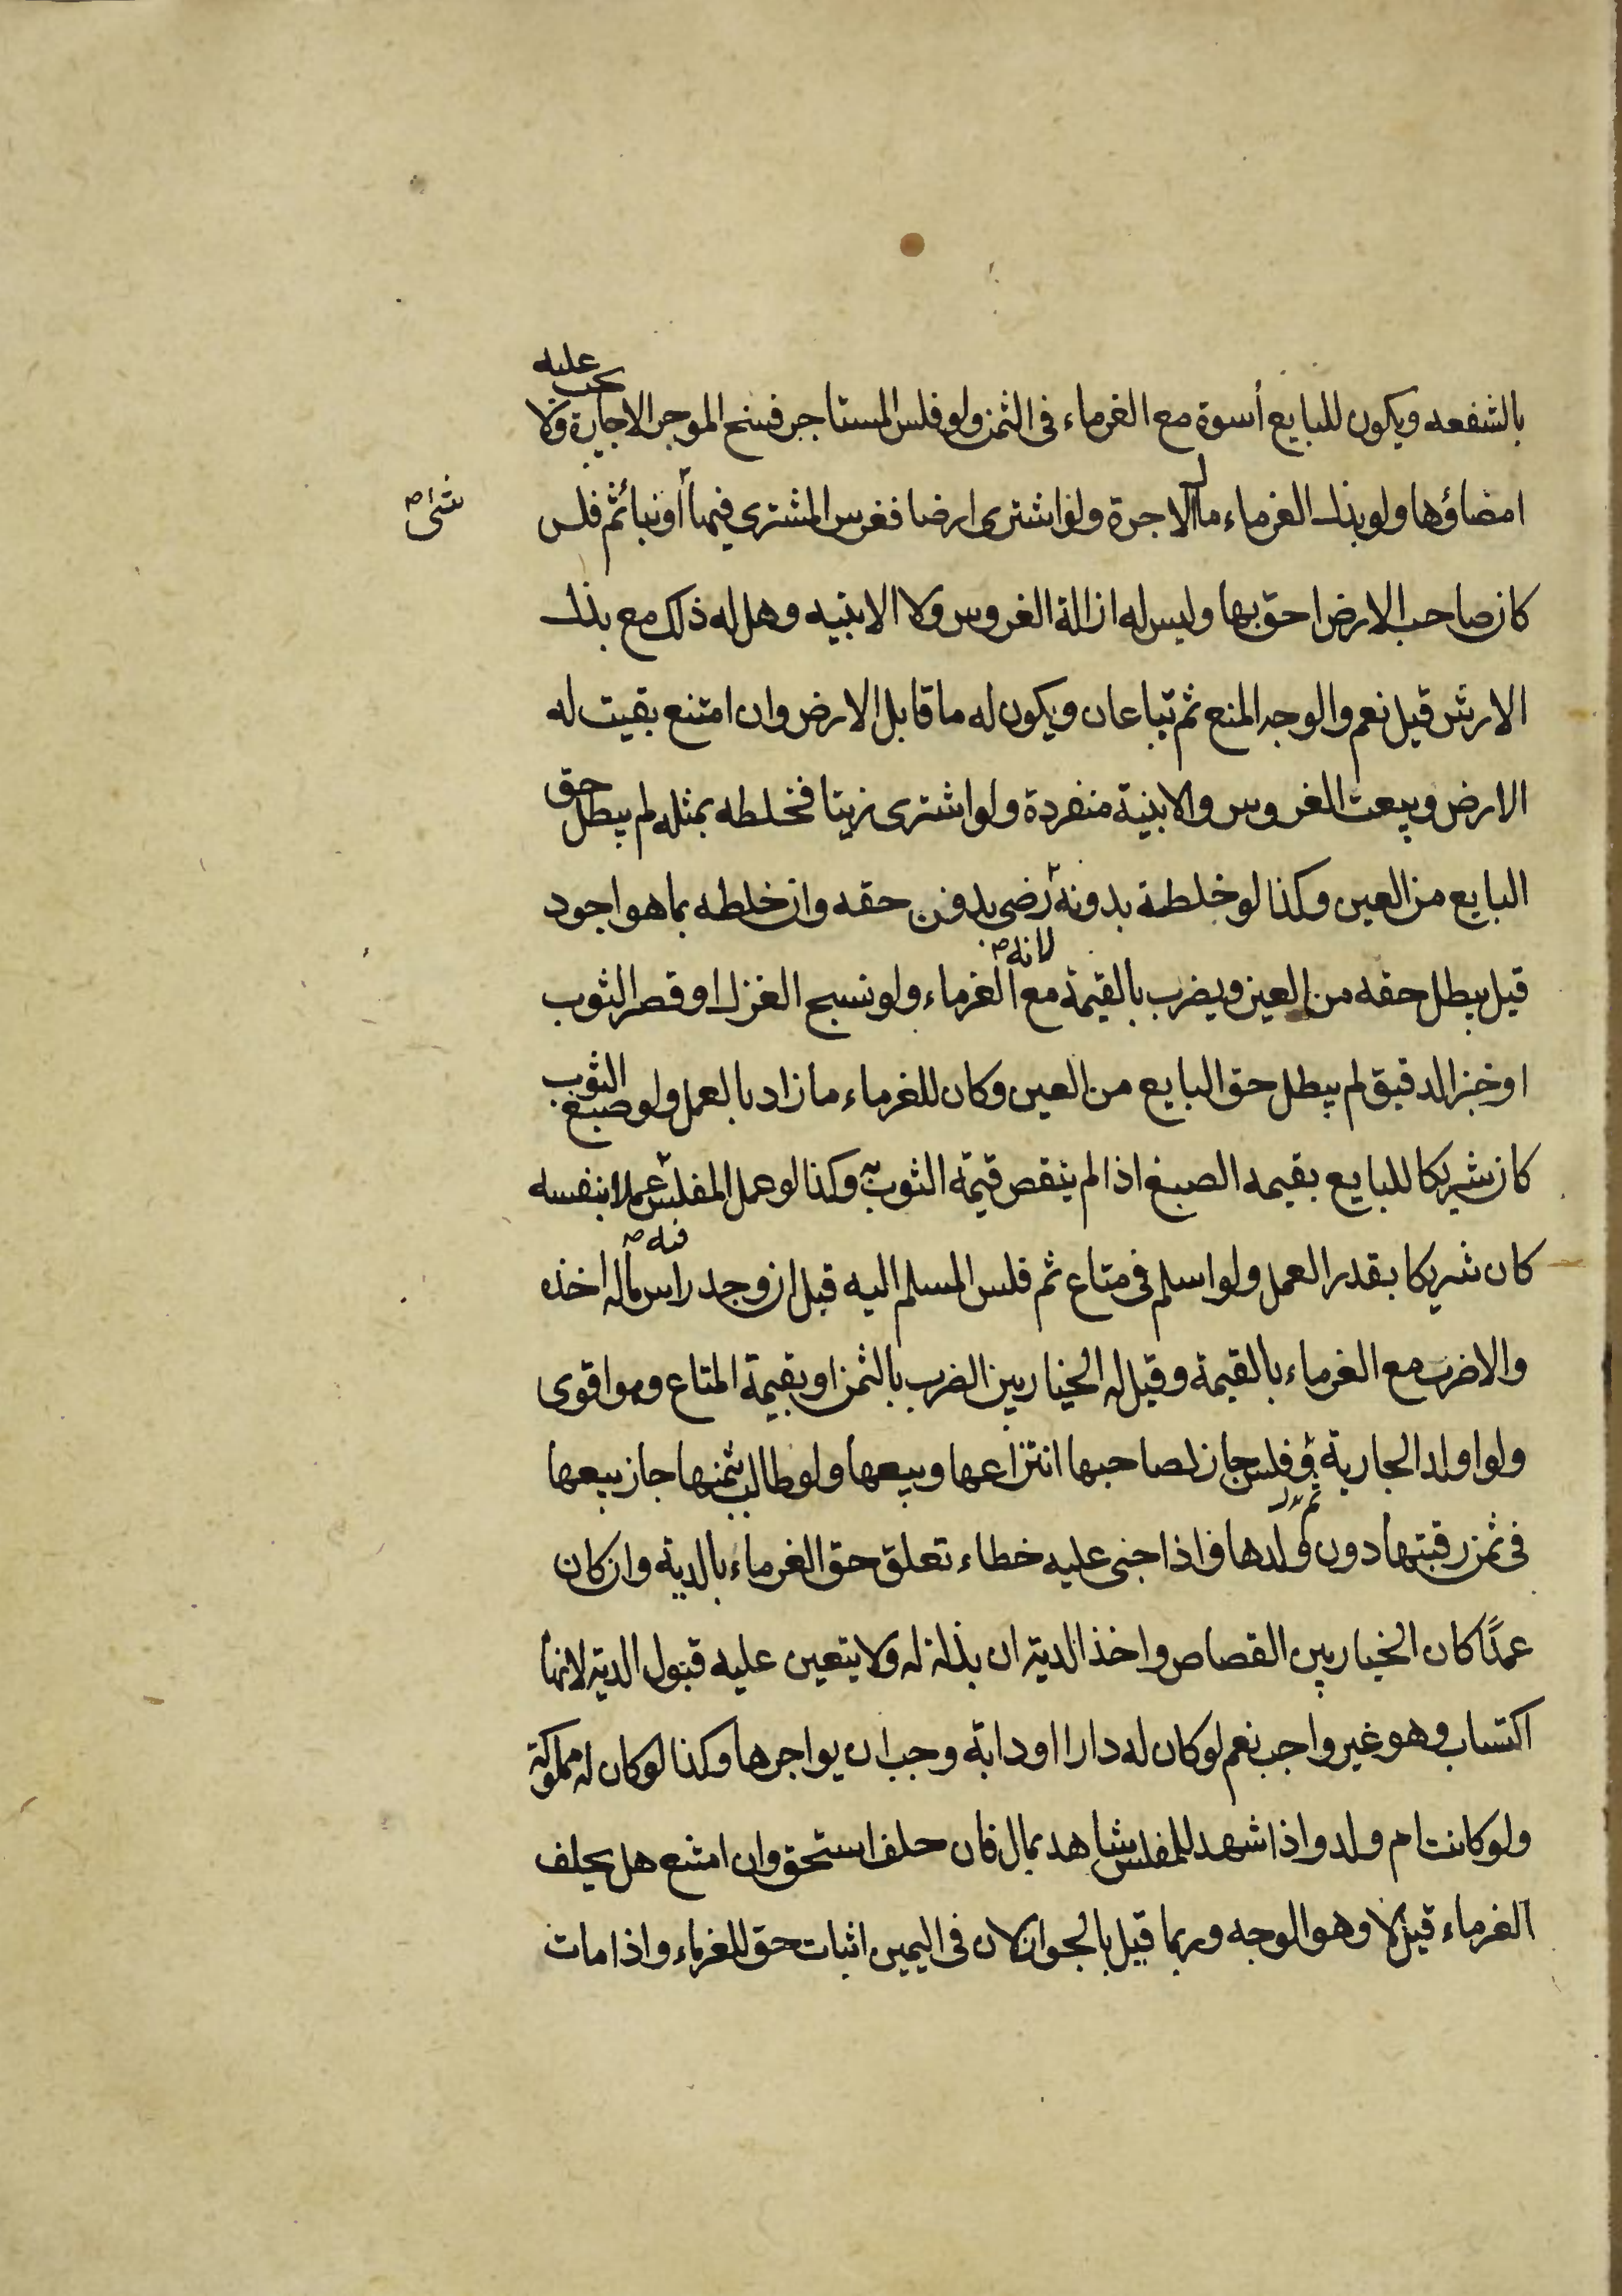 بالشفعه ويكون للبايع أسوة مع الغرماء فى الثمن ولو فلس المستاجر فسخ الموجر الاجارة ولا يجب عليه
امضاؤها ولو بذل الغرماء مال الاجرة ولو اشترى ارضا فغرس المشترى فيها أو بنا ثم فلس
كان صاحب الارض احق بها وليس له ازالة الغروس ولا الابنيه وهل له ذلك مع بذل
الارش قيل نعم والوجه المنع ثم تباعان ويكون له ما قابل الارض وان امتنع بقيت له
الارض وبيعت الغروس والابنية منفردة ولو اشترى زيتا فخلطه بمثله لم يبطل حق
البايع من العين وكذا لو خلطه بدونه رضى بدون حقه وان خلطه بما هو اجود
لانه
قيل يبطل حقه من العين ويضرب بالقيمة مع الغرماء ولو نسج الغزل او قصر الثوب
او خبز الدقيق لم يبطل حق البايع من العين وكان للغرماء ما زاد بالعمل ولو صبغ الثوب
كان شريكا للبايع بقيمه الصبغ اذا لم ينقص قيمة الثوب به وكذا لو عمل المفلس عملا بنفسه
فيه
كان شريكا بقدر العمل ولو اسلم فى متاع ثم فلس المسلم اليه قيل ان وجد راس ماله اخذه
والا ضرب مع الغرماء بالقيمة وقيل له الخيار بين الضرب بالثمن او بقيمة المتاع وهو اقوى
ولو اولد الجارية فلس جاز لصاحبها انتزاعها وبيعها ولو طالب بثمنها جاز بيعها
ثم
فى ثمن رقبتها دون ولدها واذا جنى عليه خطاء تعلق حق الغرماء بالدية وان كان
عمدًا كان الخيار بين القصاص واخذ الدية ان بذلت له ولا يتعين عليه قبول الدية لانها
اكتساب وهو غير واجب نعم لو كان له دارا او دابة وجب ان يواجرها وكذا لو كان له مملوكة
ولو كانت ام ولد واذا شهد للمفلس شاهد بمال فان حلف استحق وان امتنع هل يحلف
الغرماء قيل لا وهو الوجه وربما قيل بالجواز لان فى اليمين اثبات حق للغرماء واذا مات